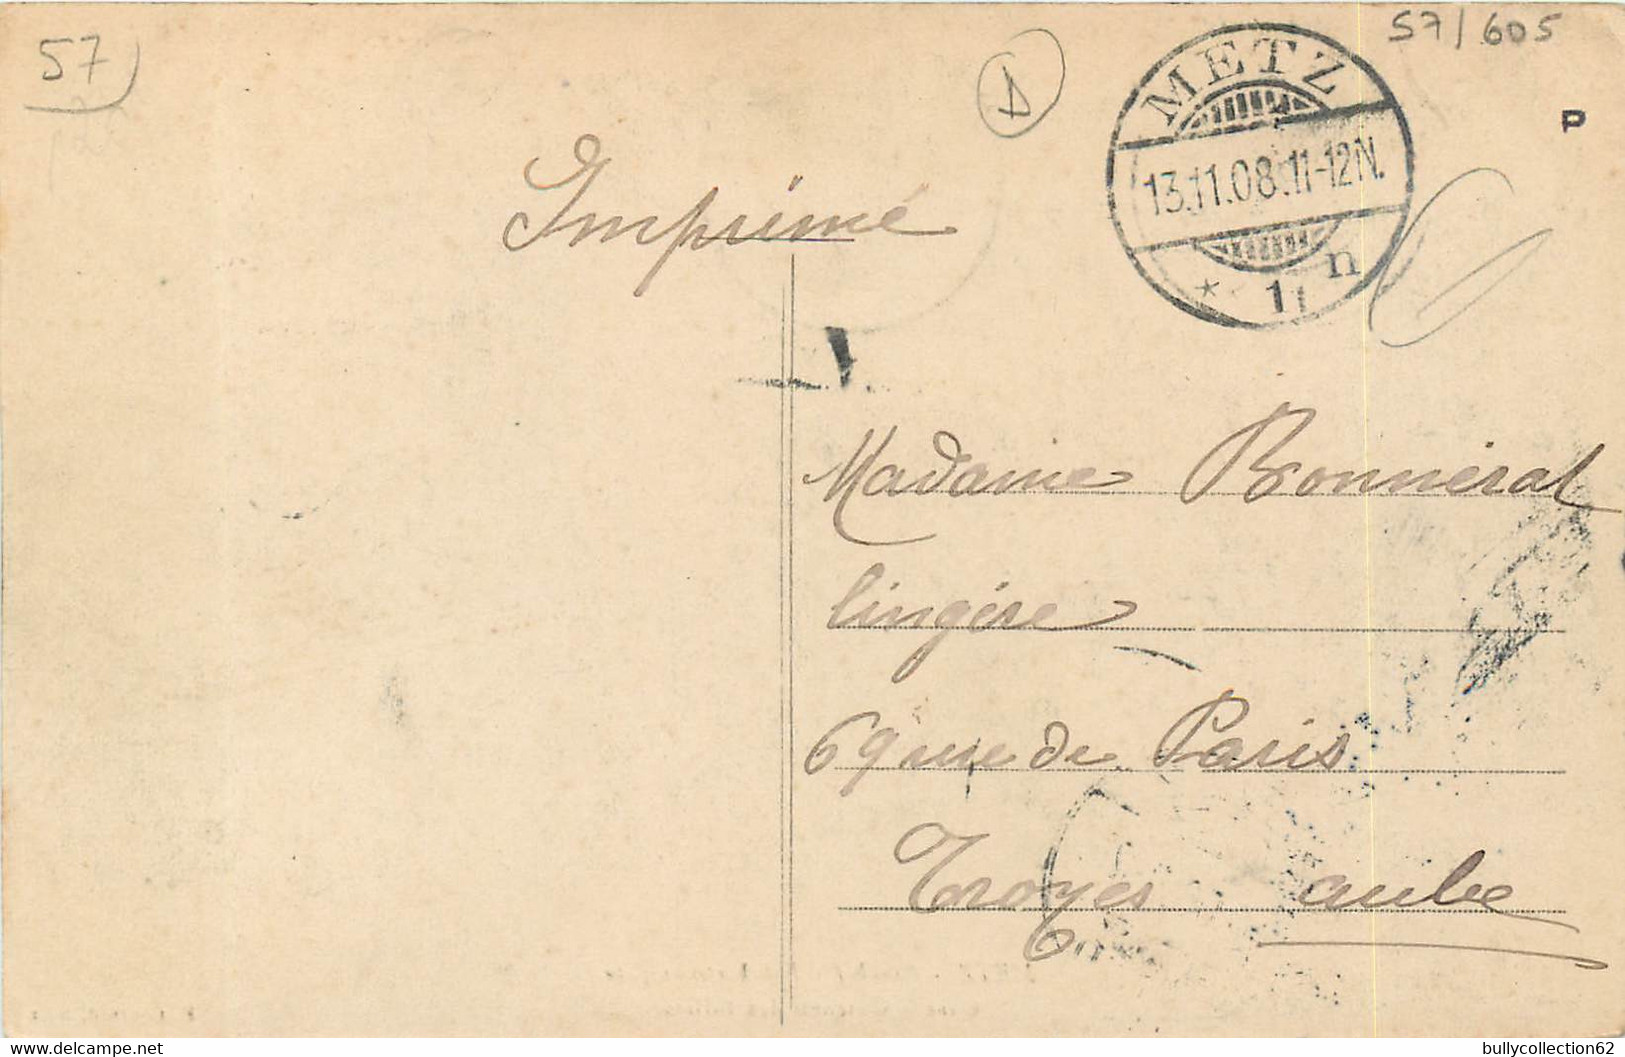 57
A
57/605
METZ
13.11.08.11-12N.
* 1 n
P
Imprimé
Madame Bonnéral
lingère
69 rue de Paris
Troyes aube
bullycollection62